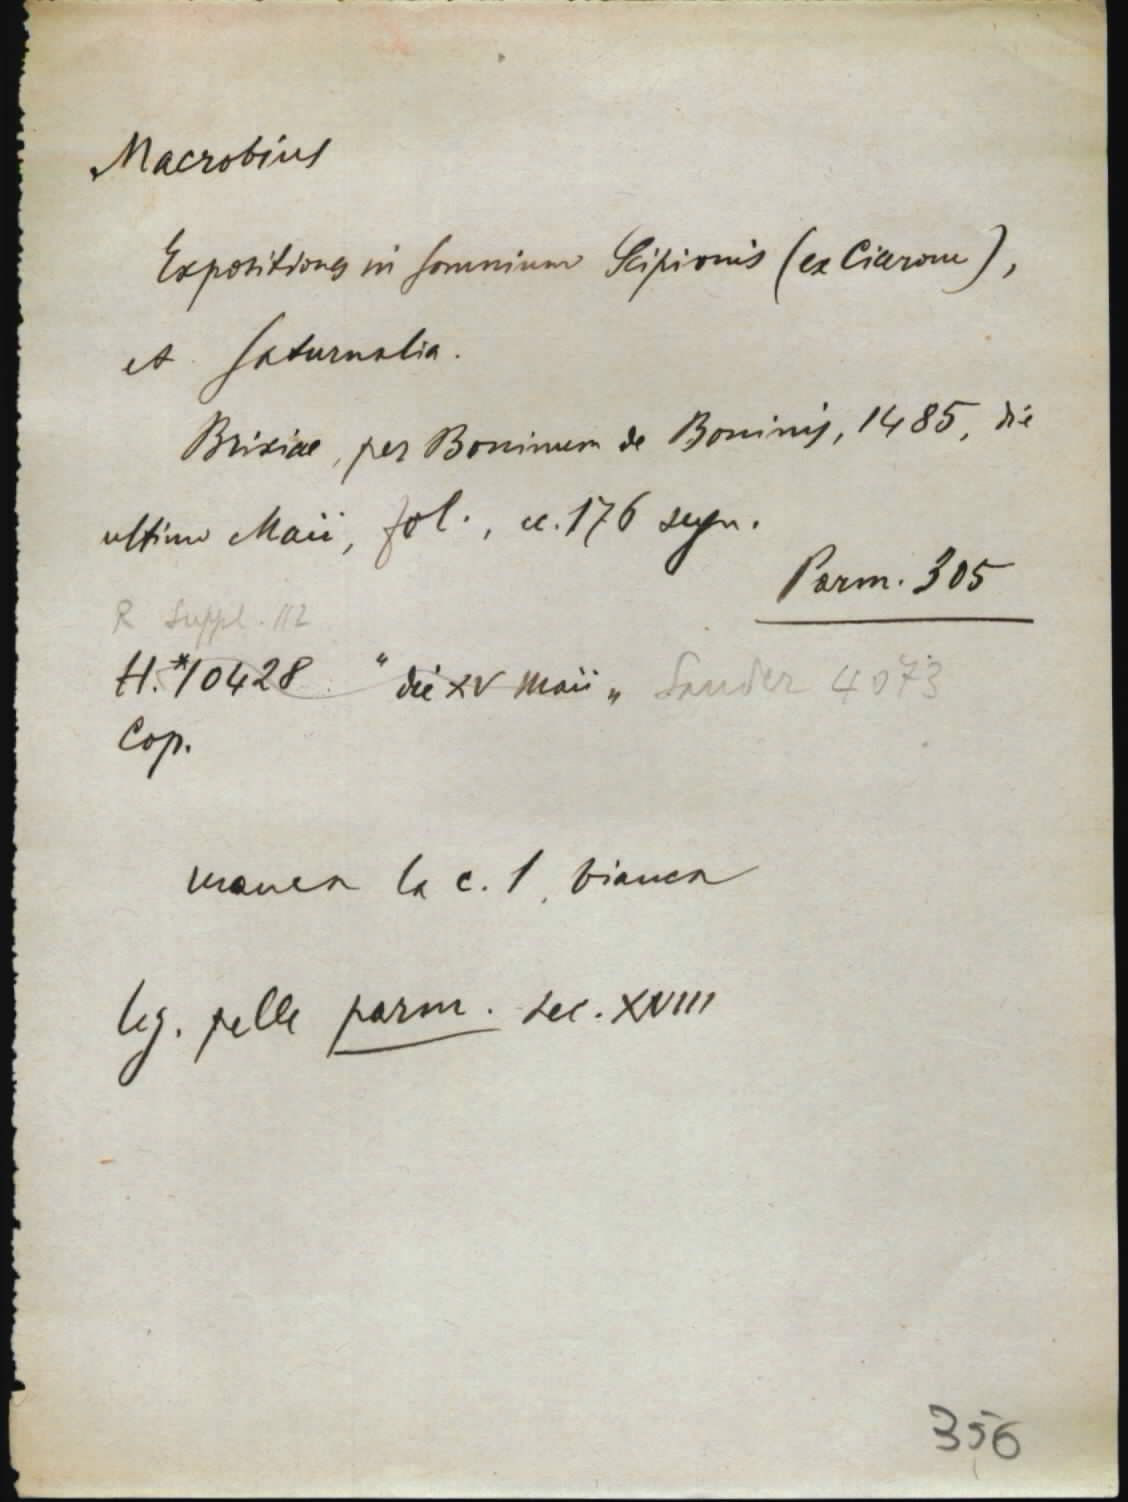 Macrobius
Expositiones in somnium Scipionis (ex Cicerone),
et Saturnalia.
Brixiae, per Boninum de Boninis, 1485, die
ultimo Maii, fol., cc. 176 segn.
Parm. 305
R Suppl. 112
H.*10428 "die XV Maii" Sander 4073
Cop.
manca la c. 1, bianca
leg. pelle parm. sec. XVIII
356